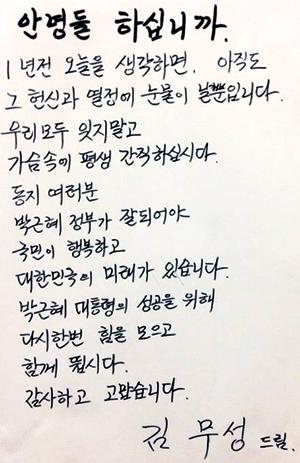 안녕들 하십니까.
1년전 오늘을 생각하면. 아직도
그 헌신과 열정에 눈물이 날뿐입니다.
우리모두 잊지말고
가슴속에 평생 간직하십시다.
동지 여러분
박근혜 정부가 잘되어야
국민이 행복하고
대한민국의 미래가 있습니다.
박근혜 대통령의 성공을 위해
다시한번 힘을 모으고
함께 뜁시다.
감사하고 고맙습니다.
김 무성 드림.